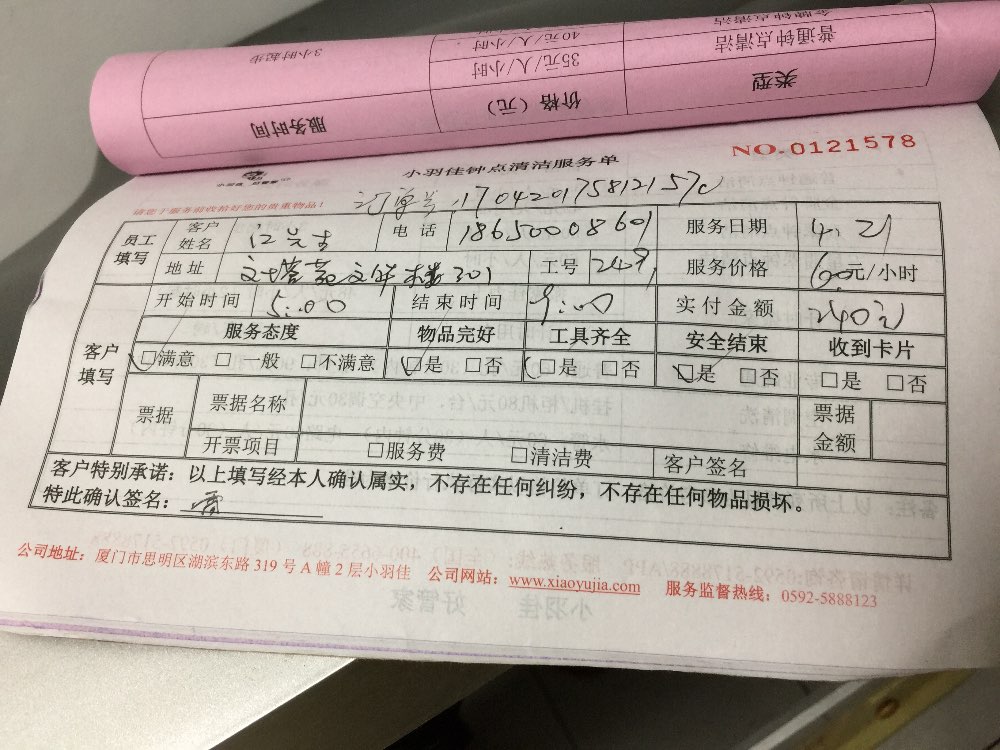 类型 价格（元） 服务时间
普通钟点清洁 35元/人/小时 3小时起步
40元/人/小时
小羽佳钟点清洁服务单 NO.0121578
请您于服务前收拾好您的贵重物品！ 1704201758121570
员工填写 客户姓名 江先生 电话 18650008601 服务日期 4.21
地址 301 工号 2409 服务价格 60元/小时
客户填写 开始时间 5:00 结束时间 9:00 实付金额 240元
服务态度 物品完好 工具齐全 安全结束 收到卡片
□满意 □一般 □不满意 □是 □否 □是 □否 □是 □否 □是 □否
票据 票据名称 票据金额
开票项目 □服务费 □清洁费 客户签名
客户特别承诺：以上填写经本人确认属实，不存在任何纠纷，不存在任何物品损坏。
特此确认签名：
公司地址：厦门市思明区湖滨东路319号A幢2层小羽佳 公司网站：www.xiaoyujia.com 服务监督热线：0592-5888123